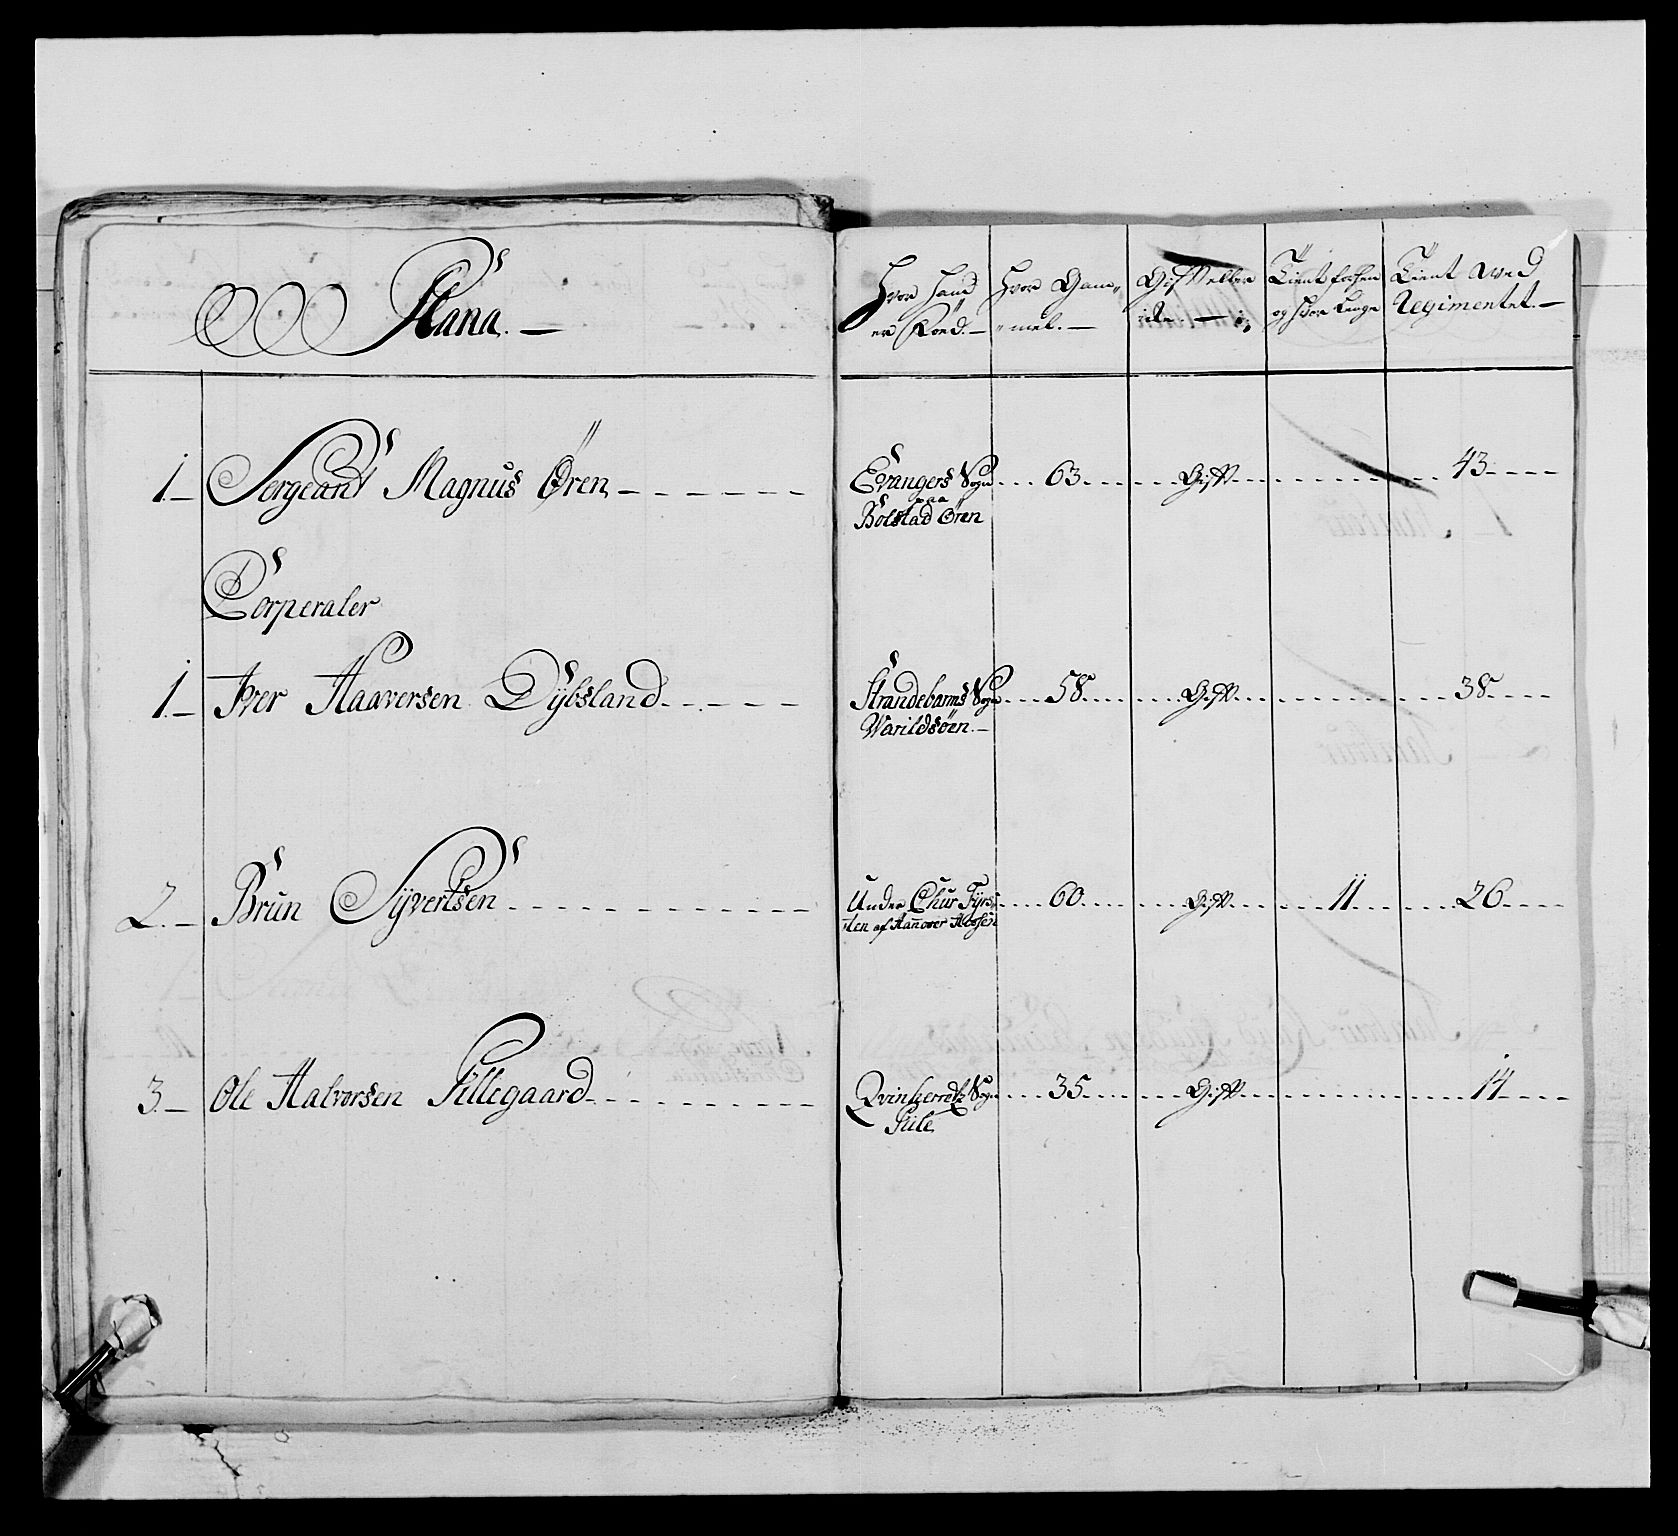 Plana. —
Hvor hand er Fød. —
Hvor Gam„ „mel. —
Gift eller icke. —
Tient forhen og hvor Længe
Tient wed Regimentet. —
1. — Sergeant Magnus Øren — Evangers Sogn paa Bolstad Øren 63 Gift 43
Corperaler
1. — Iver Haaversen Dÿbsland Strandebarms Sogn Warildsöen. — 58 Gift 38
2. — Brun Sÿvertsen Under Chur Fÿrs ten af Hanover 60 Gift 11 26
3. — Ole Halvorsen Pillegaard Qvinherretz Sogn Piile 35 Gift 14